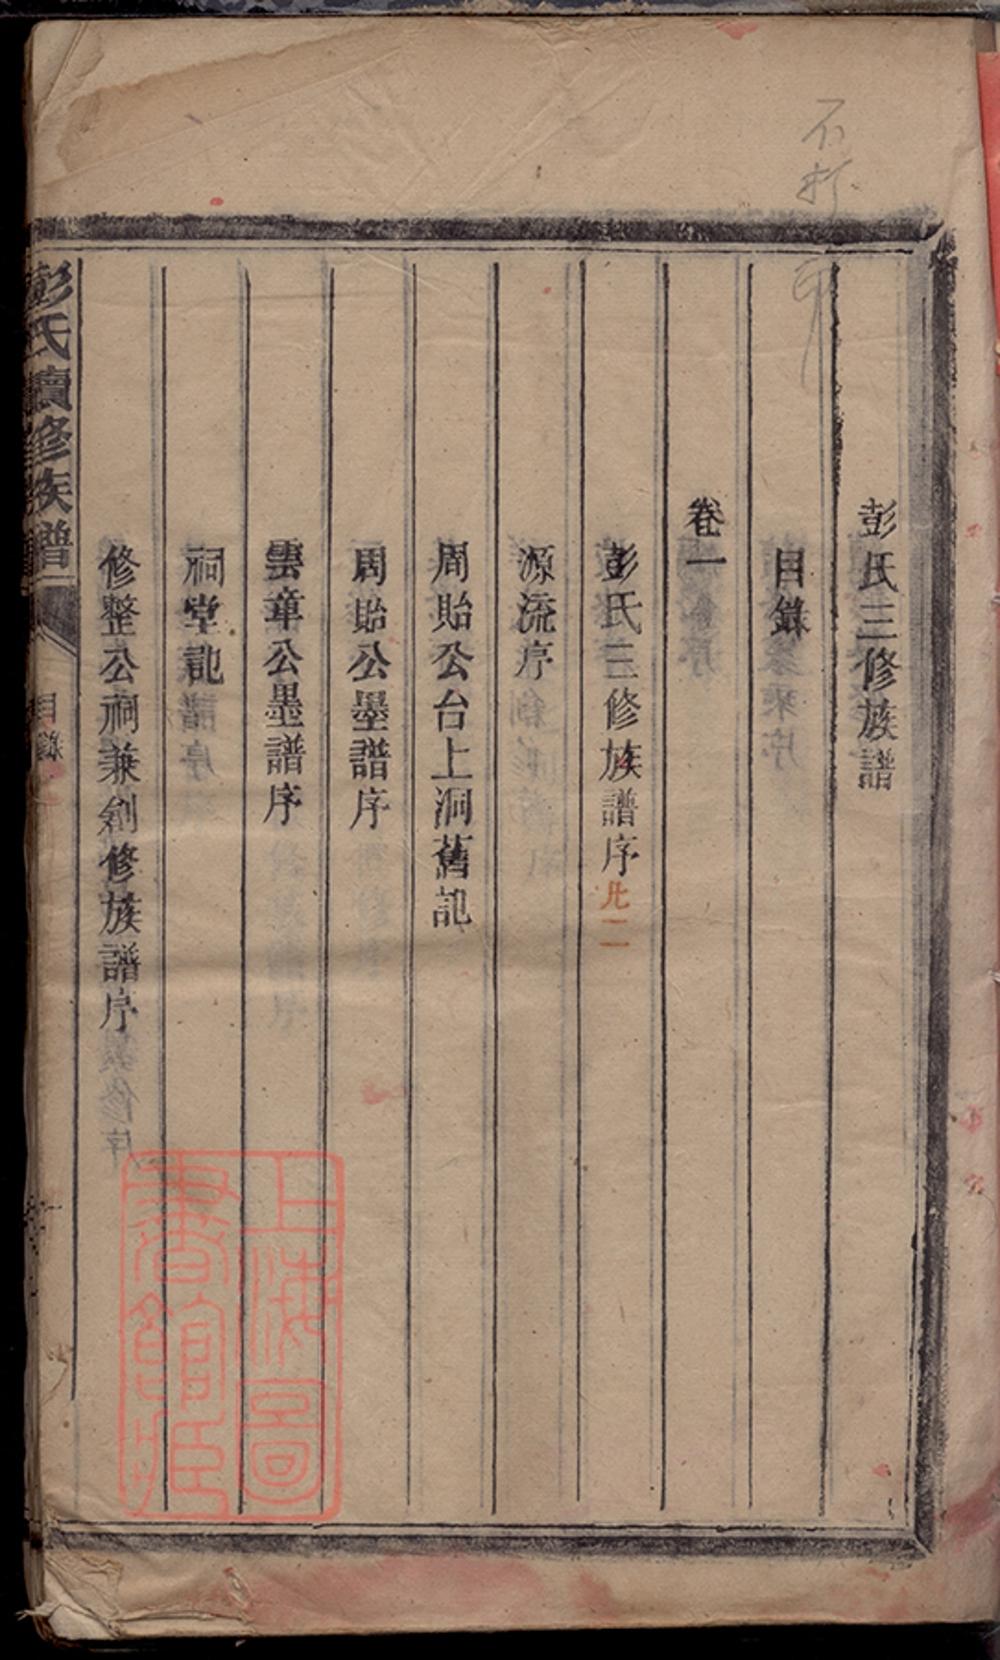 彭氏三修族譜
目錄
卷一
彭氏三修族譜序
源流序
周貽公台上洞舊記
周貽公墨譜序
雲章公墨譜序
祠堂記
修整公祠兼創修族譜序
彭氏續修族譜
目錄
上海圖書館藏